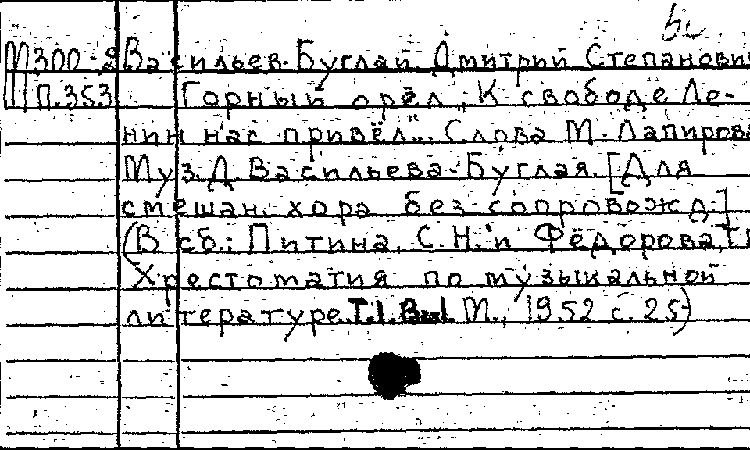 М300-2 Васильев-Буглай Дмитрий Степанович
П.353 Горный орёл „К свободе Ле-
нин нас привёл". Слова М. Лапирова
Муз. Д Васильева-Буглая. [Для
смешан. хора без сопровожд.]
(В сб.: Питина, С.Н. и Фёдорова,
Хрестоматия по музыкальной
литературе. Т.1. Вып1 М., 1952 с. 25)